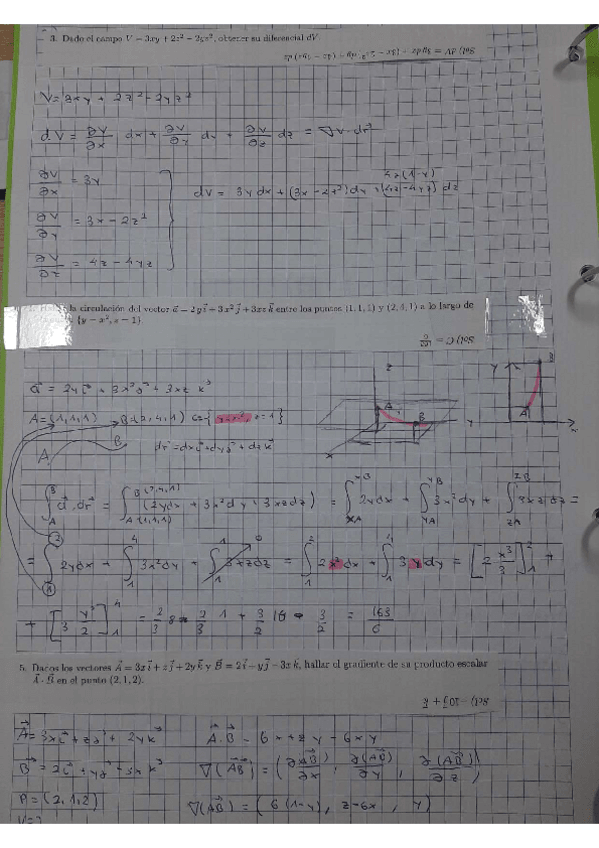 3. Dado el campo V = 3xy + 2z² − 2yz², obtener su diferencial dV.
V = 3xy + 2z² − 2yz²
dV = ∂V/∂x dx + ∂V/∂y dy + ∂V/∂z dz = ∇V · dr⃗
∂V/∂x = 3y
4z(1−y)
dV = 3y dx + (3x − 2z²) dy + (4z − 4yz) dz
∂V/∂y = 3x − 2z²
∂V/∂z = 4z − 4yz
la circulación del vector a⃗ = 2y i⃗ + 3x² j⃗ + 3xz k⃗ entre los puntos (1, 1, 1) y (2, 4, 1) a lo largo de
{y = x², z = 1}
a⃗ = 2y i⃗ + 3x² j⃗ + 3xz k⃗
A = (1,1,1) B = (2,4,1) C = { y = x², z = 1 }
A B dr⃗ = dx i⃗ + dy j⃗ + dz k⃗
z y x A B
y x A B
∫_A^B a⃗ · dr⃗ = ∫_{A(1,1,1)}^{B(2,4,1)} (2y dx + 3x² dy + 3xz dz) = ∫_{xA}^{xB} 2y dx + ∫_{yA}^{yB} 3x² dy + ∫_{zA}^{zB} 3xz dz =
= ∫_1^2 2y dx + ∫_1^4 3x² dy + ∫_1^1 3xz dz 0 = ∫_1^2 2x² dx + ∫_1^4 3y dy = [2 x³/3]_1^2 +
+ [3 y²/2]_1^4 = 2/3 8 − 2/3 1 + 3/2 16 − 3/2 = 163/6
5. Dados los vectores A⃗ = 3x i⃗ + z j⃗ + 2y k⃗ y B⃗ = 2 i⃗ + y j⃗ − 3x k⃗, hallar el gradiente de su producto escalar
A⃗ · B⃗ en el punto (2, 1, 2).
Sol) −10 j⃗ + k⃗
A⃗ = 3x i⃗ + z j⃗ + 2y k⃗ A⃗·B⃗ = 6x + z y − 6xy
B⃗ = 2 i⃗ + y j⃗ − 3x k⃗ ∇(A⃗B⃗) = (∂A⃗B⃗/∂x, ∂(A⃗B⃗)/∂y, ∂(A⃗B⃗)/∂z)
P = (2,1,2) ∇(A⃗B⃗) = (6(1−y), z−6x, y)